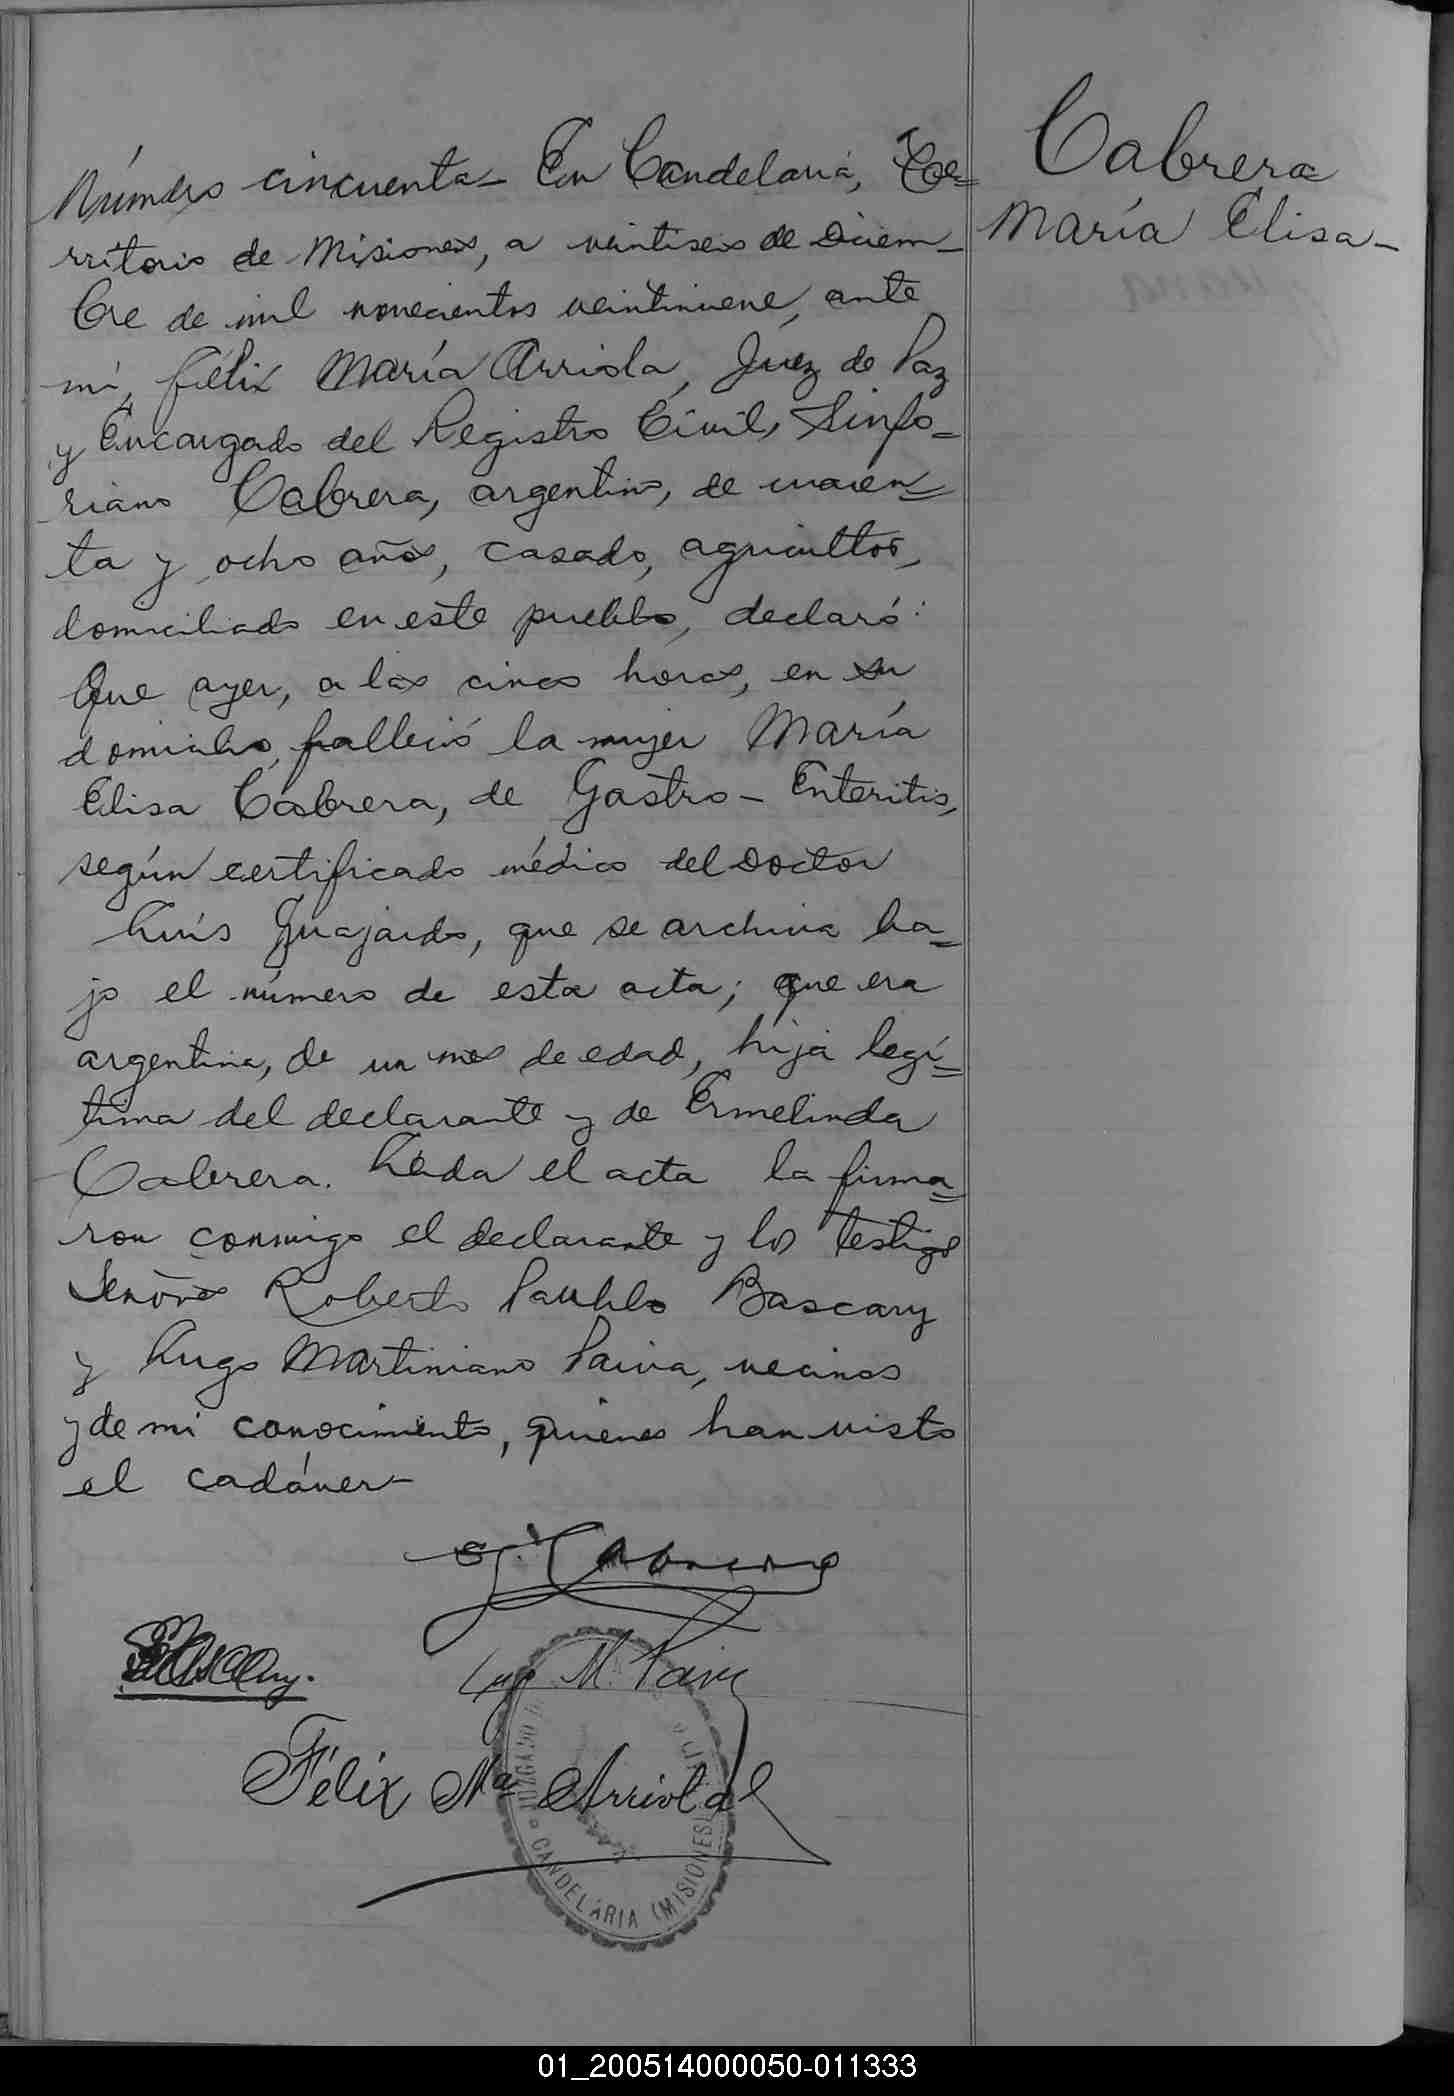 Cabrera
María Elisa-
Número cincuenta- En Candelaria, Te=
rritorio de Misiones, a veintiseis de Diciem-
bre de mil novecientos veintinueve, ante
mí, Félix María Arriola, Juez de Paz
y Encargado del Registro Civil, Sinfo-
riano Cabrera, argentino, de cuaren=
ta y ocho años, casado, agricultor,
domiciliado en este pueblo, declaró:
Que ayer, a las cinco horas, en su
domicilio, falleció la mujer María
Elisa Cabrera, de Gastro-Enteritis,
según certificado médico del Doctor
Luís Guajardo, que se archiva ba=
jo el número de esta acta; que era
argentina, de un mes de edad, hija legí=
tima del declarante y de Ermelinda
Cabrera. Leída el acta la firma=
ron conmigo el declarante y los testigos
Señores Roberto Paublo Bascary
y Lugo Martiniano Paiva, vecinos
y de mi conocimiento, quienes han visto
el cadáver-
S. Cabrera
Bascary.
Lugo M. Paiva
Félix Mª Arriola
JUZGADO D
CANDELARIA (MISIONES)
01_200514000050-011333